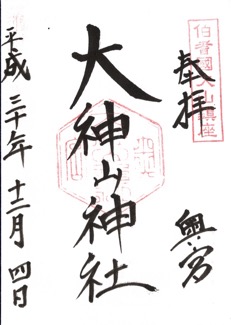 伯耆國大山鎮座
奉拝
奥宮
大神山神社
平成三十年十二月四日